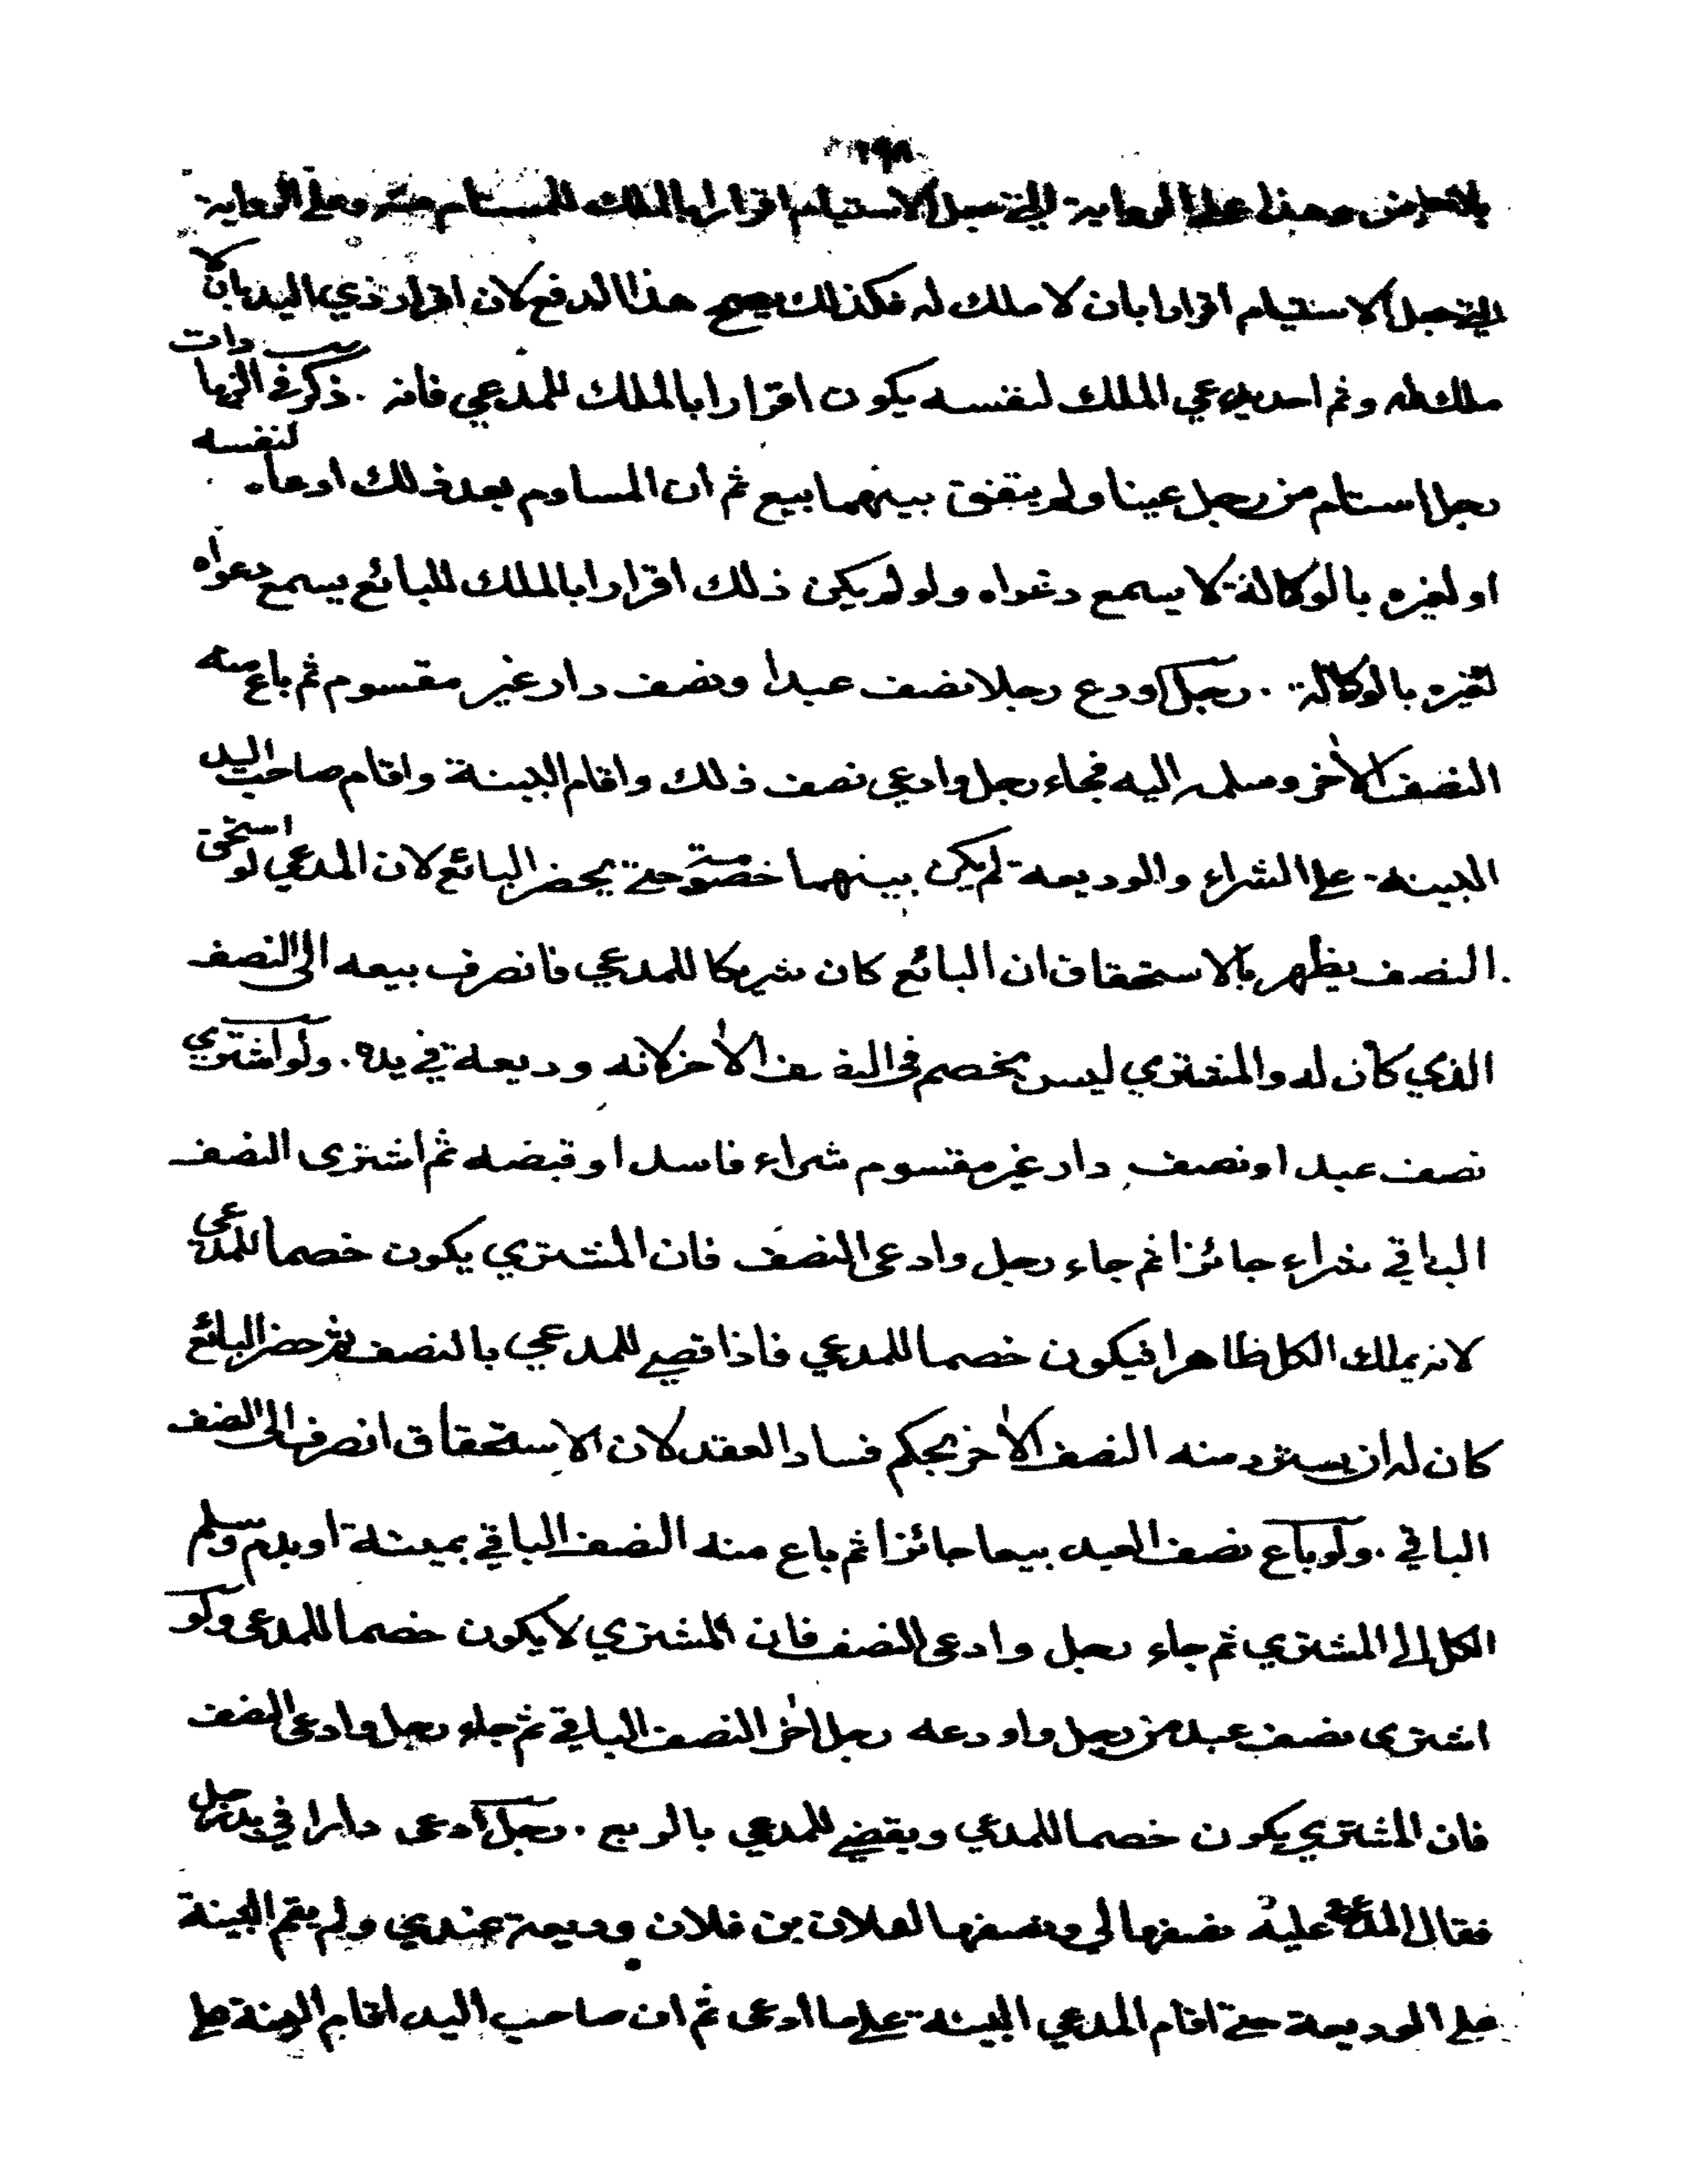 ١٩٨
بلا تعارض وهذا على الرواية التي تجعل الاستيام اقرارا بالملك للمستام منه وعلى الرواية
التي تجعل الاستيام اقرارا بان لا ملك له فكذلك يصح هذا الدفع لان اقرار ذي اليد بان لا
ملك له وثم احد يدعي الملك لنفسه يكون اقرارا بالملك للمدعي فانه . ذكر في الزيادات
رجل استام من رجل عينا ولم يتفق بينهما بيع ثم ان المساوم بعد ذلك ادعاه لنفسه
او لغيره بالوكالة لا يسمع دعواه ولو لم يكن ذلك اقرارا بالملك للبائع يسمع دعواه
لغيره بالوكالة . رجل اودع رجلا نصف عبدا ونصف دار غير مقسوم ثم باع منه
النصف الاخر وسلمه اليه فجاء رجل وادعى نصف ذلك واقام البينة واقام صاحب اليد
البينة على الشراء والوديعة لم يكن بينهما خصومة حتى يحضر البائع لان المدعي لو استحق
النصف يظهر بالاستحقاق ان البائع كان شريكا للمدعي فانصرف بيعه الى النصف
الذي كان له والمشتري ليس بخصم في النصف الاخر لانه وديعة في يده . ولو اشترى
نصف عبد او نصف دار غير مقسوم شراء فاسدا وقبضه ثم اشترى النصف
الباقي شراء جائزا ثم جاء رجل وادعى النصف فان المشتري يكون خصما للمدعى
لانه يملك الكل ظاهرا فيكون خصما للمدعي فاذا قضي للمدعي بالنصف ثم حضر البائع
كان له ان يسترد منه النصف الاخر بحكم فساد العقد لان الاستحقاق انصرف الى النصف
الباقي . ولو باع نصف العبد بيعا جائزا ثم باع منه النصف الباقي بميتة او بدم وسلم
الكل الى المشتري ثم جاء رجل وادعى النصف فان المشتري لا يكون خصما للمدعى ولو
اشترى نصف عبد من رجل واودعه رجل اخر النصف الباقي ثم جاء رجل وادعى النصف
فان المشتري يكون خصما للمدعي ويقضي للمدعي بالربع . رجل ادعى دارا في يد رجل
فقال المدعى عليه نصفها لي ونصفها لفلان بن فلان وديعة عندي ولم يقم البينة
على الوديعة حتى اقام المدعي البينة على ما ادعى ثم ان صاحب اليد اقام البينة على